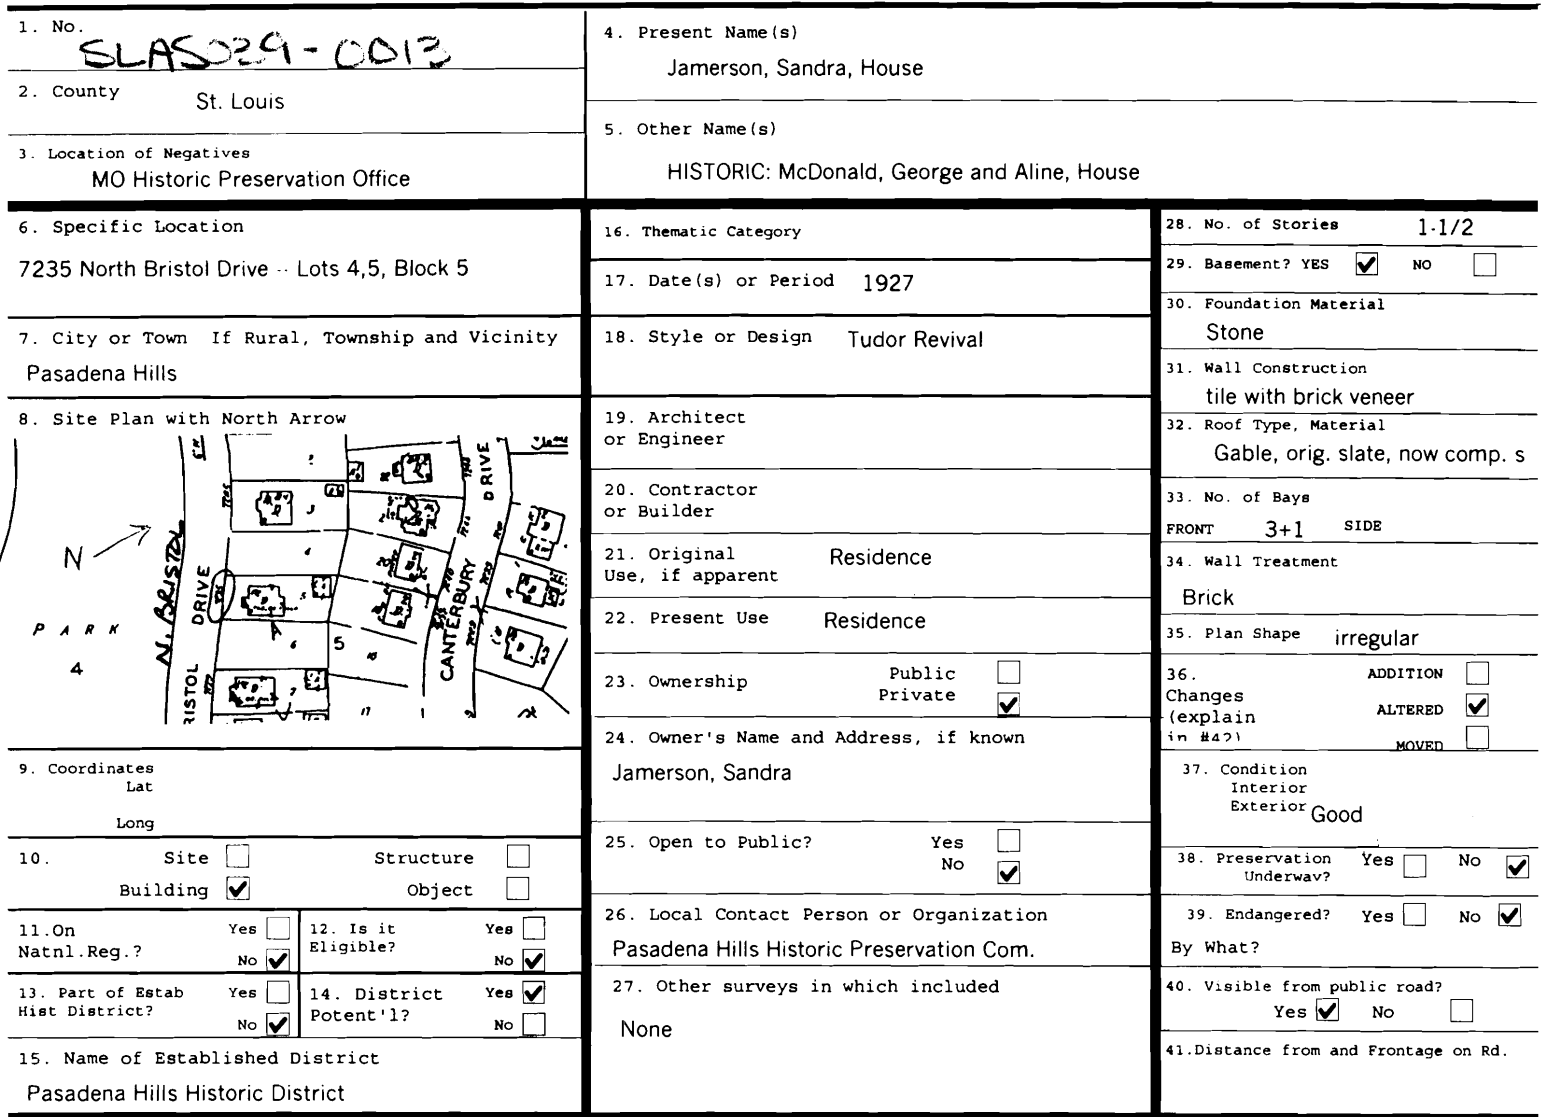 1. No.
SLAS029-0013
2. County
St. Louis
3. Location of Negatives
MO Historic Preservation Office
4. Present Name(s)
Jamerson, Sandra, House
5. Other Name(s)
HISTORIC: McDonald, George and Aline, House
6. Specific Location
7235 North Bristol Drive -- Lots 4,5, Block 5
7. City or Town If Rural, Township and Vicinity
Pasadena Hills
8. Site Plan with North Arrow
N
N. BRISTOL
DRIVE
RISTOL
PARK
4
5
CANTERBURY
DRIVE
9. Coordinates
Lat
Long
10. Site Structure
Building Object
11.On Yes
Natnl.Reg.? No
12. Is it Yes
Eligible? No
13. Part of Estab Yes
Hist District? No
14. District Yes
Potent'l? No
15. Name of Established District
Pasadena Hills Historic District
16. Thematic Category
17. Date(s) or Period 1927
18. Style or Design Tudor Revival
19. Architect
or Engineer
20. Contractor
or Builder
21. Original Residence
Use, if apparent
22. Present Use Residence
23. Ownership Public
Private
24. Owner's Name and Address, if known
Jamerson, Sandra
25. Open to Public? Yes
No
26. Local Contact Person or Organization
Pasadena Hills Historic Preservation Com.
27. Other surveys in which included
None
28. No. of Stories 1-1/2
29. Basement? YES NO
30. Foundation Material
Stone
31. Wall Construction
tile with brick veneer
32. Roof Type, Material
Gable, orig. slate, now comp. s
33. No. of Bays
FRONT 3+1 SIDE
34. Wall Treatment
Brick
35. Plan Shape irregular
36. ADDITION
Changes
(explain ALTERED
in #42) MOVED
37. Condition
Interior
Exterior Good
38. Preservation Yes No
Underway?
39. Endangered? Yes No
By What?
40. Visible from public road?
Yes No
41.Distance from and Frontage on Rd.